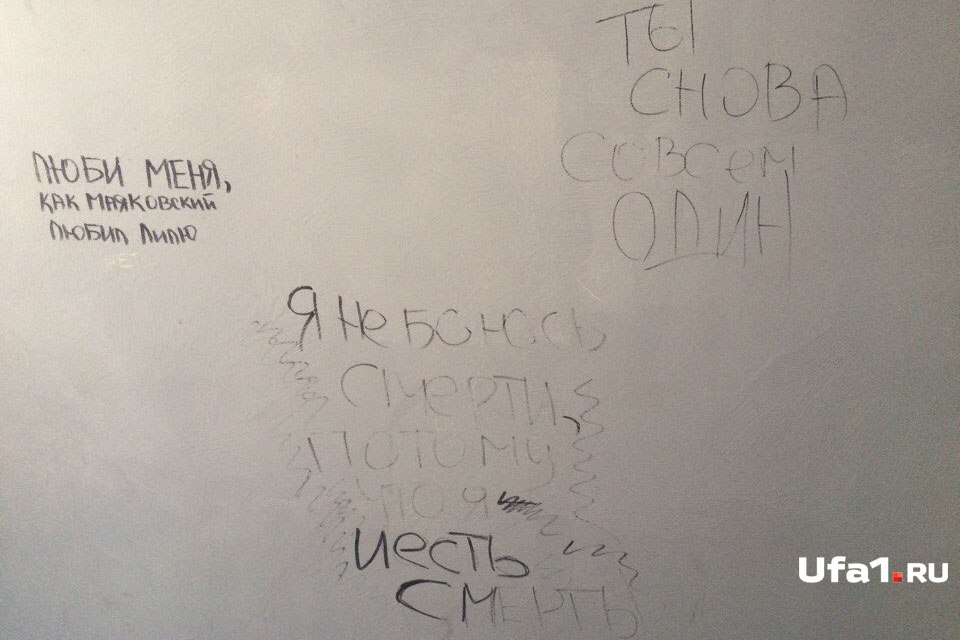 ТЫ
СНОВА
СОВСЕМ
ОДИН
ЛЮБИ МЕНЯ,
КАК МАЯКОВСКИЙ
ЛЮБИЛ ЛИЛЮ
НЕТ
Я не боюсь
смерти,
потому
что я
и есть
смерть
Ufa1.RU